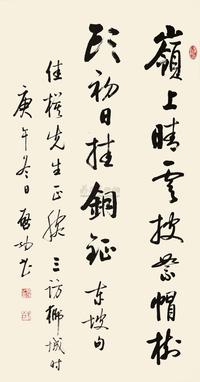 嶺上晴雲披絮帽樹
頭初日挂銅鉦 東坡句
佳櫻先生正腕 三訪柳城時
庚午冬日 啟功書